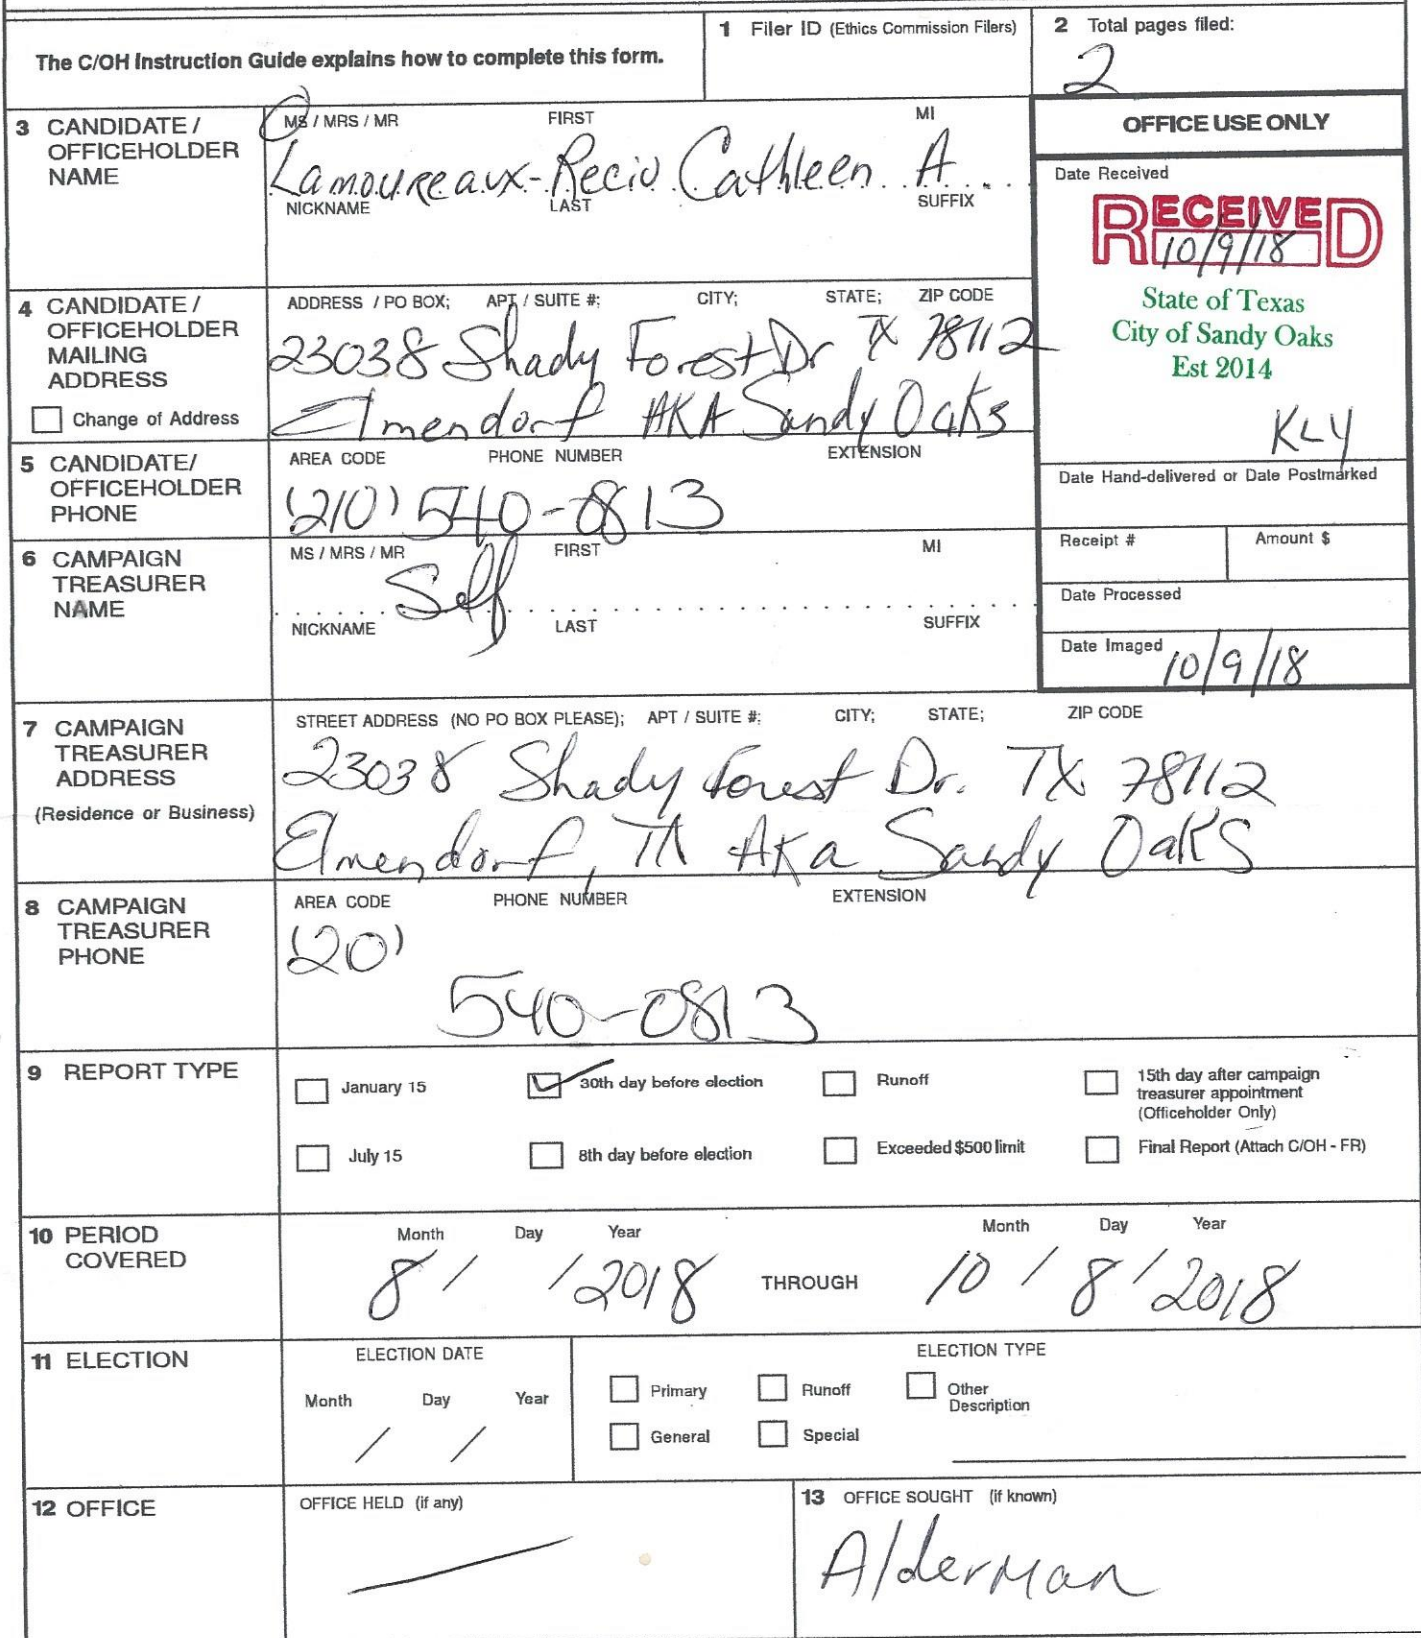 The C/OH Instruction Guide explains how to complete this form.
1 Filer ID (Ethics Commission Filers)
2 Total pages filed:
2
3 CANDIDATE / OFFICEHOLDER NAME
MS / MRS / MR FIRST MI
Lamoureaux-Recio Cathleen A
NICKNAME LAST SUFFIX
OFFICE USE ONLY
Date Received
RECEIVED
10/9/18
State of Texas
City of Sandy Oaks
Est 2014
KLY
4 CANDIDATE / OFFICEHOLDER MAILING ADDRESS
Change of Address
ADDRESS / PO BOX; APT / SUITE #; CITY; STATE; ZIP CODE
23038 Shady Forest Dr TX 78112
Elmendorf AKA Sandy Oaks
5 CANDIDATE/ OFFICEHOLDER PHONE
AREA CODE PHONE NUMBER EXTENSION
(210) 540-0813
Date Hand-delivered or Date Postmarked
Receipt # Amount $
Date Processed
Date Imaged 10/9/18
6 CAMPAIGN TREASURER NAME
MS / MRS / MR FIRST MI
Self
NICKNAME LAST SUFFIX
7 CAMPAIGN TREASURER ADDRESS
(Residence or Business)
STREET ADDRESS (NO PO BOX PLEASE); APT / SUITE #; CITY; STATE; ZIP CODE
23038 Shady Forest Dr. TX 78112
Elmendorf, TX AKa Sandy Oaks
8 CAMPAIGN TREASURER PHONE
AREA CODE PHONE NUMBER EXTENSION
(20)
540-0813
9 REPORT TYPE
January 15 30th day before election Runoff 15th day after campaign treasurer appointment (Officeholder Only)
July 15 8th day before election Exceeded $500 limit Final Report (Attach C/OH - FR)
10 PERIOD COVERED
Month Day Year Month Day Year
8 / / 2018 THROUGH 10 / 8 / 2018
11 ELECTION
ELECTION DATE
Month Day Year
/ /
ELECTION TYPE
Primary Runoff Other Description
General Special
12 OFFICE
OFFICE HELD (if any)
13 OFFICE SOUGHT (if known)
Alderman